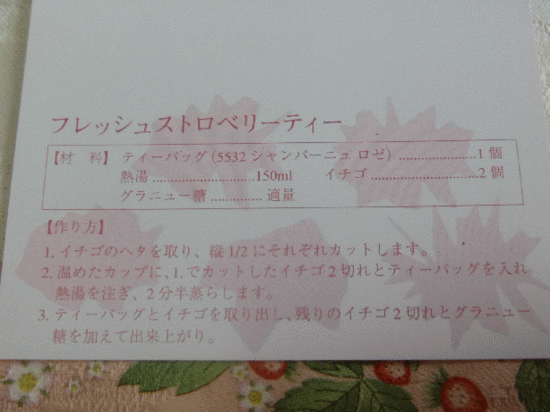 フレッシュストロベリーティー
【材　料】ティーバッグ (5532 シャンパーニュ ロゼ) ......................1 個
熱湯 ......................150ml　イチゴ ......................2 個
グラニュー糖 .............. 適量
【作り方】
1. イチゴのヘタを取り、縦 1/2 にそれぞれカットします。
2. 温めたカップに、1. でカットしたイチゴ 2 切れとティーバッグを入れ
熱湯を注ぎ、2 分半蒸らします。
3. ティーバッグとイチゴを取り出し、残りのイチゴ 2 切れとグラニュー
糖を加えて出来上がり。